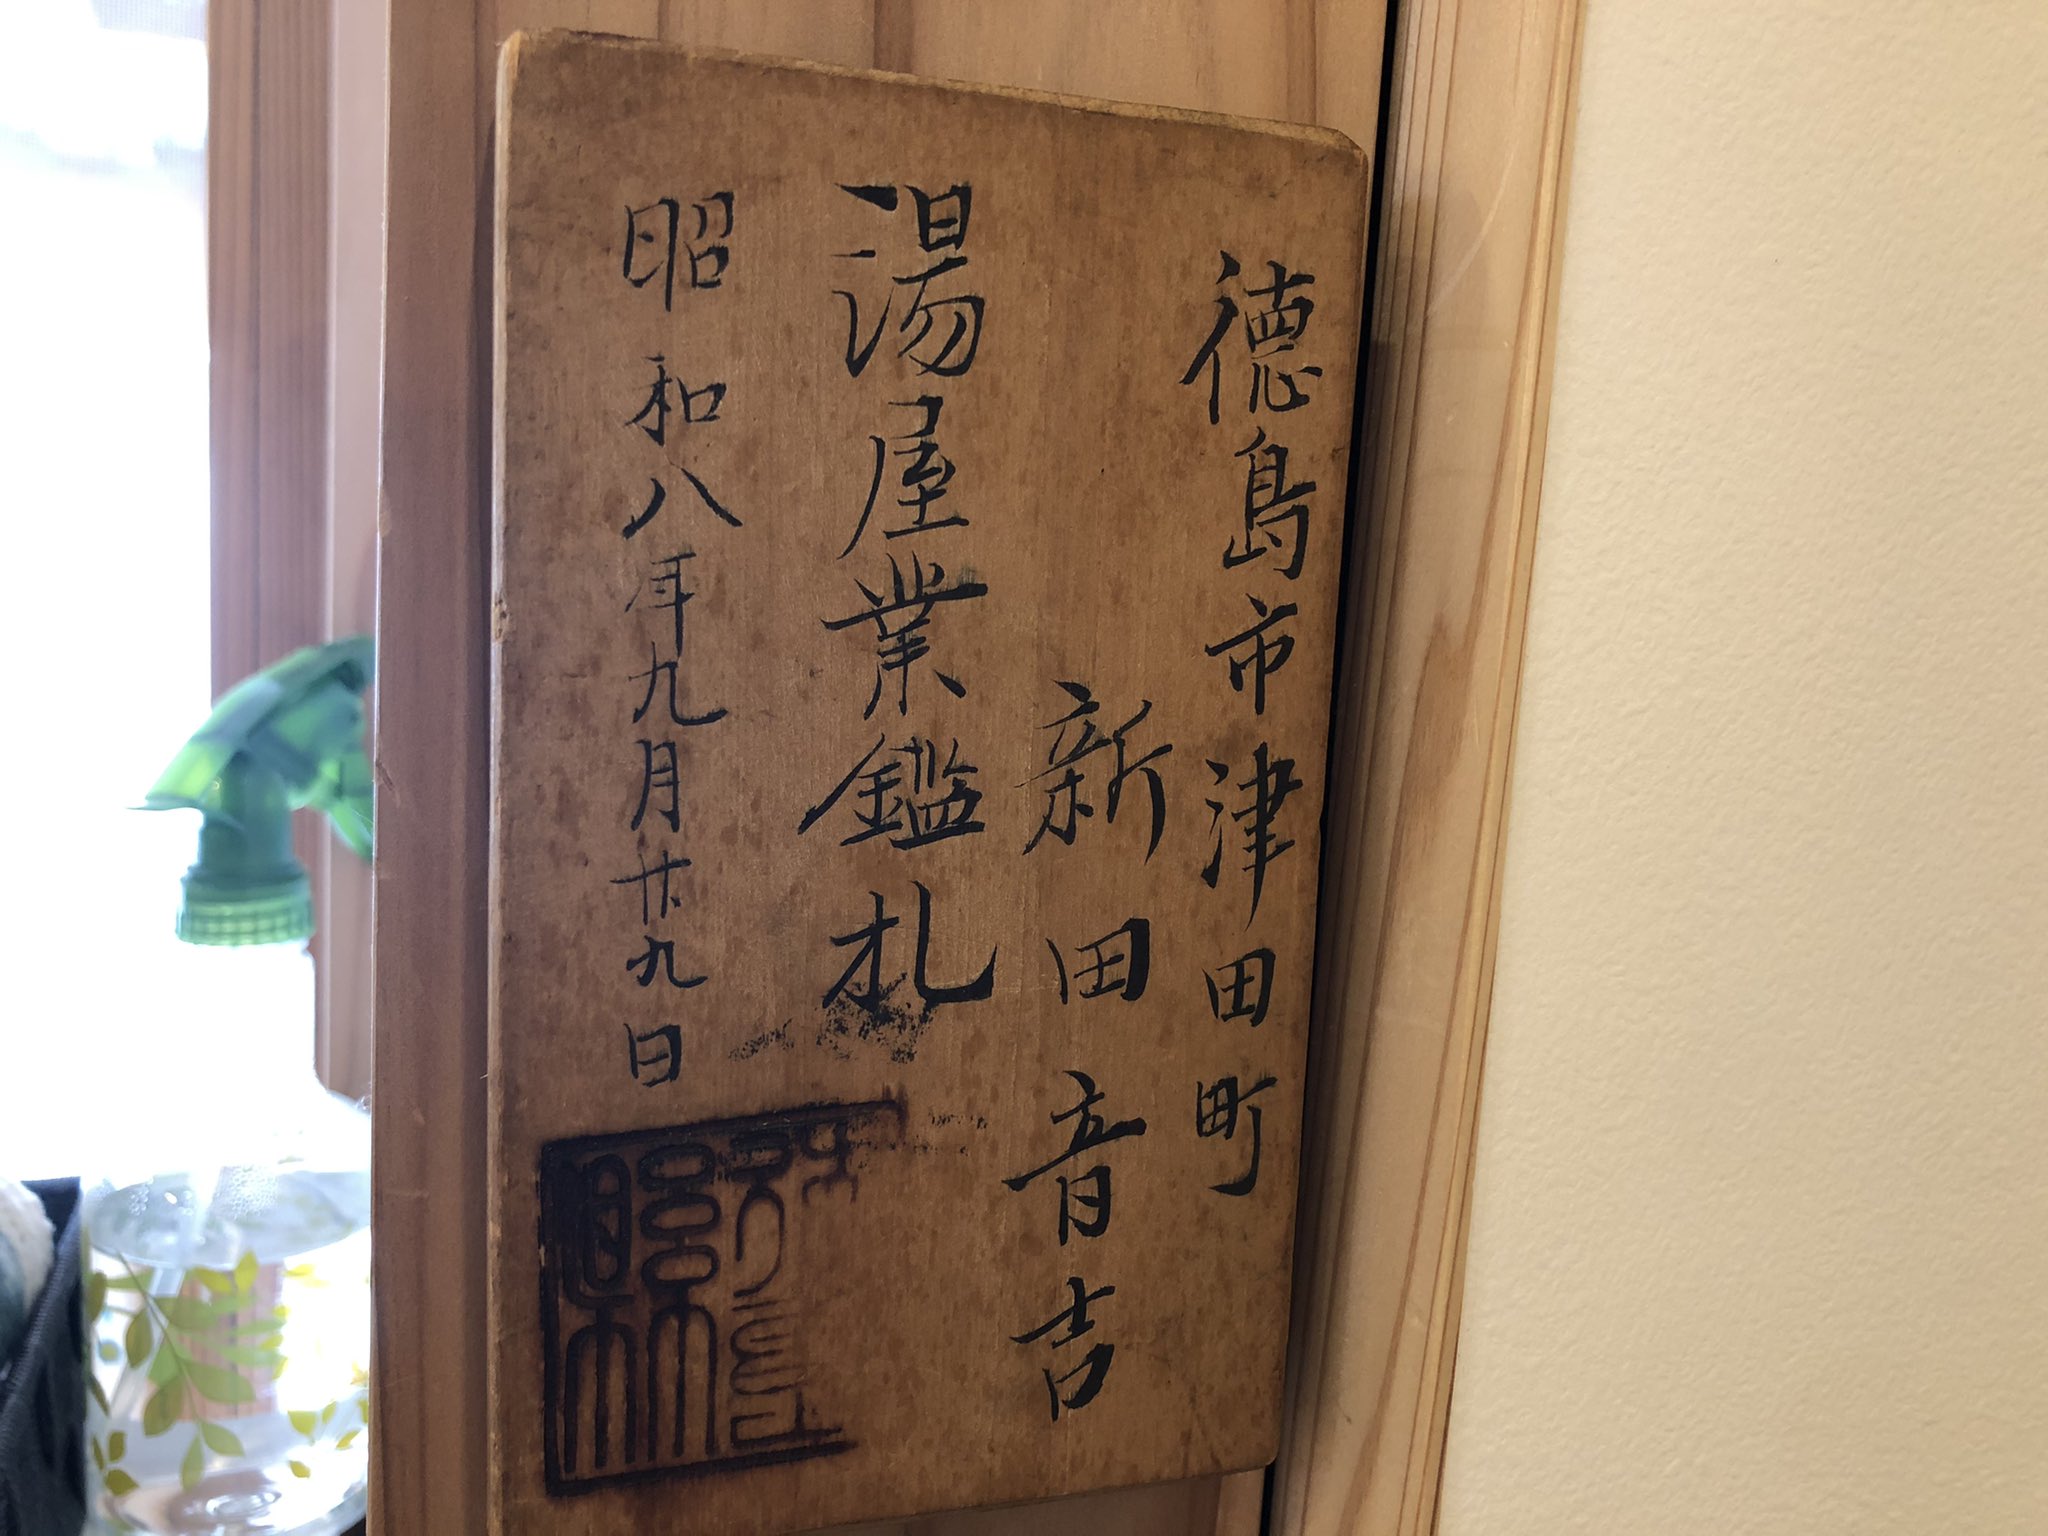 徳島市津田町
新田音吉
湯屋業鑑札
昭和八年九月廿九日